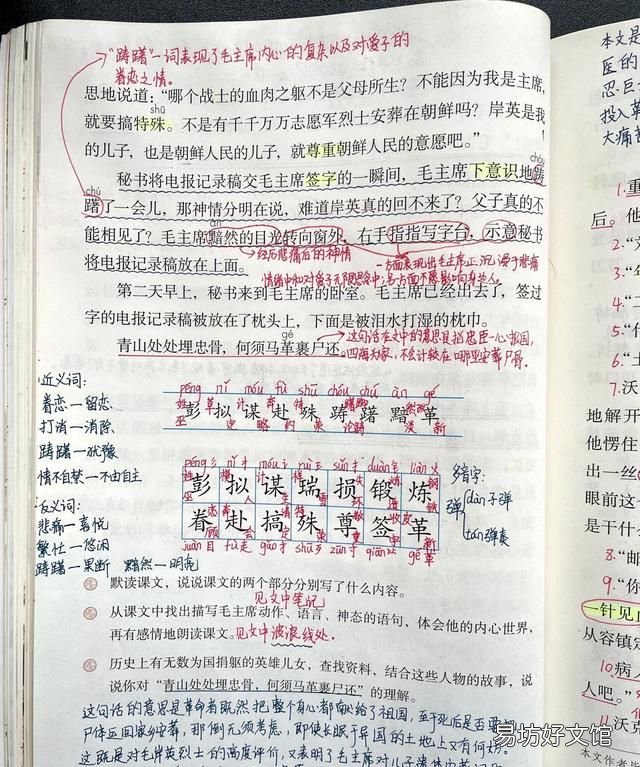 “踌躇”一词表现了毛主席内心的复杂以及对爱子的
眷恋之情。
思地说道：“哪个战士的血肉之躯不是父母所生？不能因为我是主席，
shū
就要搞特殊。不是有千千万万志愿军烈士安葬在朝鲜吗？岸英是我
的儿子，也是朝鲜人民的儿子，就尊重朝鲜人民的意愿吧。”
chóu
秘书将电报记录稿交毛主席签字的一瞬间，毛主席下意识地踌
chú
躇了一会儿，那神情分明在说，难道岸英真的回不来了？父子真的不
àn
能相见了？毛主席黯然的目光转向窗外，右手指指写字台，示意秘书
经历悲痛后的神情
一方面表现出毛主席正沉浸于悲痛
将电报记录稿放在上面。
情绪中和对爱子无限思念中；另一方面不愿影响身边人。
第二天早上，秘书来到毛主席的卧室。毛主席已经出去了，签过
字的电报记录稿被放在了枕头上，下面是被泪水打湿的枕巾。
gé
青山处处埋忠骨，何须马革裹尸还。
这句话在文中的意思是指忠臣一心报国，
四海为家，不会计较在哪里安葬尸骨。
近义词：
眷恋—留恋
打消—消除
踌躇—犹豫
情不自禁—不由自主
反义词：
悲痛—喜悦
繁忙—悠闲
踌躇—果断 黯然—明亮
péng nǐ móu fù shū chóu chú àn gé
彭 拟 谋 赴 殊 踌 躇 黯 革
彭 拟 谋 瑞 损 锻 炼
眷 赴 搞 殊 尊 签 革
juàn fù gǎo shū zūn qiān gé
多音字：
弹
dàn 子弹
tán 弹奏
默读课文，说说课文的两个部分分别写了什么内容。
见文中笔记
从课文中找出描写毛主席动作、语言、神态的语句，体会他的内心世界，
再有感情地朗读课文。见文中波浪线处。
历史上有无数为国捐躯的英雄儿女，查找资料，结合这些人物的故事，说
说你对“青山处处埋忠骨，何须马革裹尸还”的理解。
这句话的意思是革命者既然把整个身心都献给了祖国，至于死后是否要把
尸体运回家乡安葬，那倒无须考虑，即使长眠于异国的土地上又有何妨。
这既是对毛岸英烈士的高度评价，又表明了毛主席对儿子遗体安葬问题
本文是
医的
忍巨
投入革
大痛苦
1.重
后。他
2.“
3.“年
4.“
5.“什
6.“
7.沃
地解开
他愣住
出一丝
眼前这
是干什
8.“邮
9.“你
一针见血
从容镇定
10.病人
人吧。”
11.沃克
本文作者
易坊好文馆